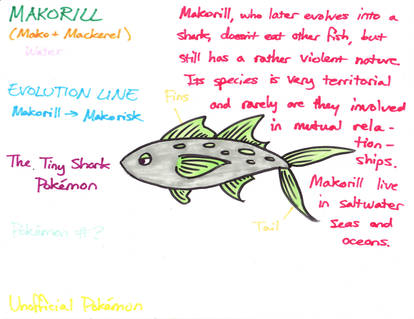 MAKORILL
(Mako + Mackerel)
Water
EVOLUTION LINE
Makorill → Makorisk
The Tiny Shark
Pokémon
Pokémon
Unofficial Pokémon
Makorill, who later evolves into a
shark, doesn't eat other fish, but
still has a rather violent nature.
Its species is very territorial
and rarely are they involved
in mutual rela-
tion-
ships.
Makorill live
in saltwater
seas and
oceans.
Fins
Tail